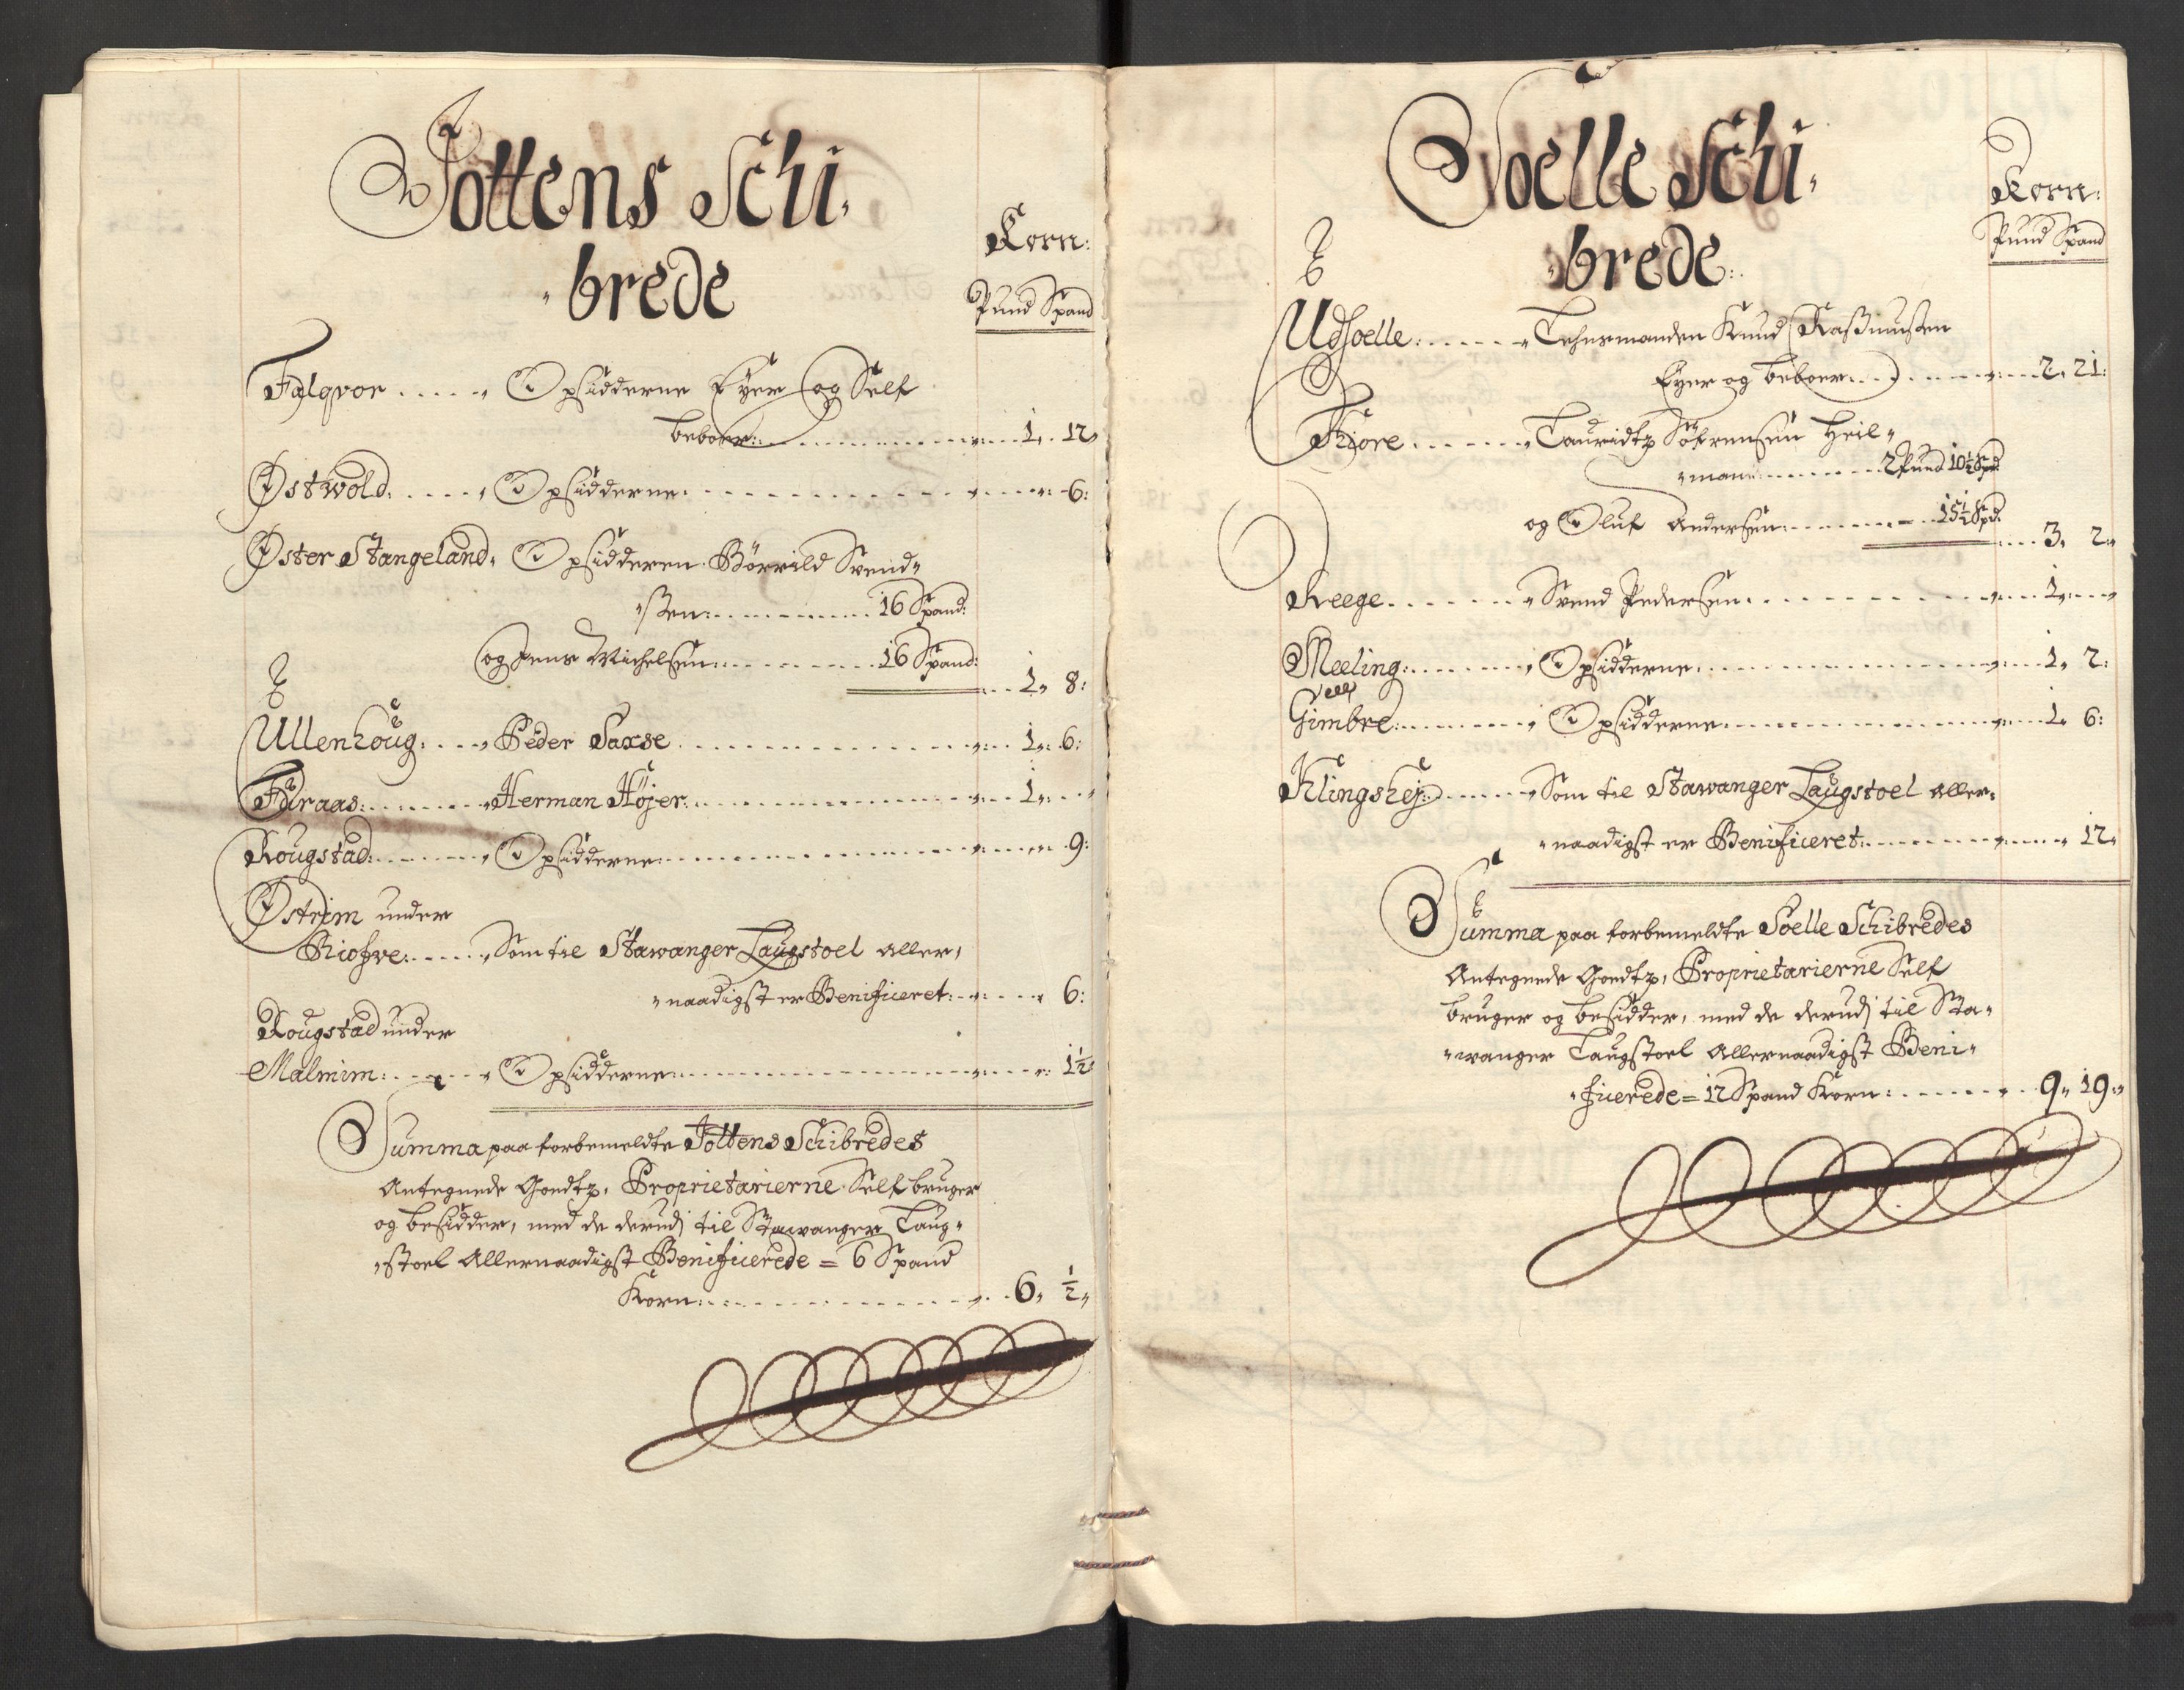 Jottens Schi-
-brede
Korn:
Pund Spand
Falqvor ..... Opsidderne Eyer og Self
beboer: ..... 1. 12
Østwold: ..... Opsidderne ..... 6:
Øster Stangeland. Opsidderen Børrild Svend-
-sen: ..... 16 Spand:
og Jens Michelsen: ..... 16 Spand: ... 1. 8:
Ullenhoug. ... Peder Saxse ..... 1: 6:
Faaraas: ..... Herman Höjer: ..... 1:
Rougstad: ..... Opsidderne ..... 9:
Østrim under
Riosve: ..... Som til Stawanger Laugstoel aller-
-naadigst er Benificeret: ..... 6:
Rougstad under
Malmim: ..... Opsidderne ..... 1½
Summa paa forbemeldte Jottens Schibredes
Antegnede Goedtz, Proprietarierne Self bruger
og besidder, med de derudj til Stawanger Laug-
-stoel Allernaadigst Benificerede = 6 Spand
Korn: ..... 6, ½,
Soelle Schi-
-brede.
Korn:
Pund Spand
Udsoelle: ..... Lehnsmanden Knud Rasmussen
Eyer og beboer ..... 2, 21:
Kiore ..... Lauridtz Söfrensen Heil-
-man: ..... 2 Pund 10½ Spd:
og Oluf Andersen: ..... 15½ Spd: ... 3, 2
Reege ..... Svend Pedersen ..... 1,
Meeling: ..... Opsidderne ..... 1, 2:
Gimbre: ..... Opsidderne ..... 1. 6:
Klingshej: ..... Som til Stawanger Laugstoel aller-
-naadigst er Benificeret: ..... 12,
Summa paa forbemeldte Soelle Schibredes
Antegnede Goedtz, Proprietarierne Self
bruger og besidder, med de derudj til Sta-
-wanger Laugstoel Allernaadigst Beni-
-ficerede = 12 Spand Korn: ..... 9, 19: